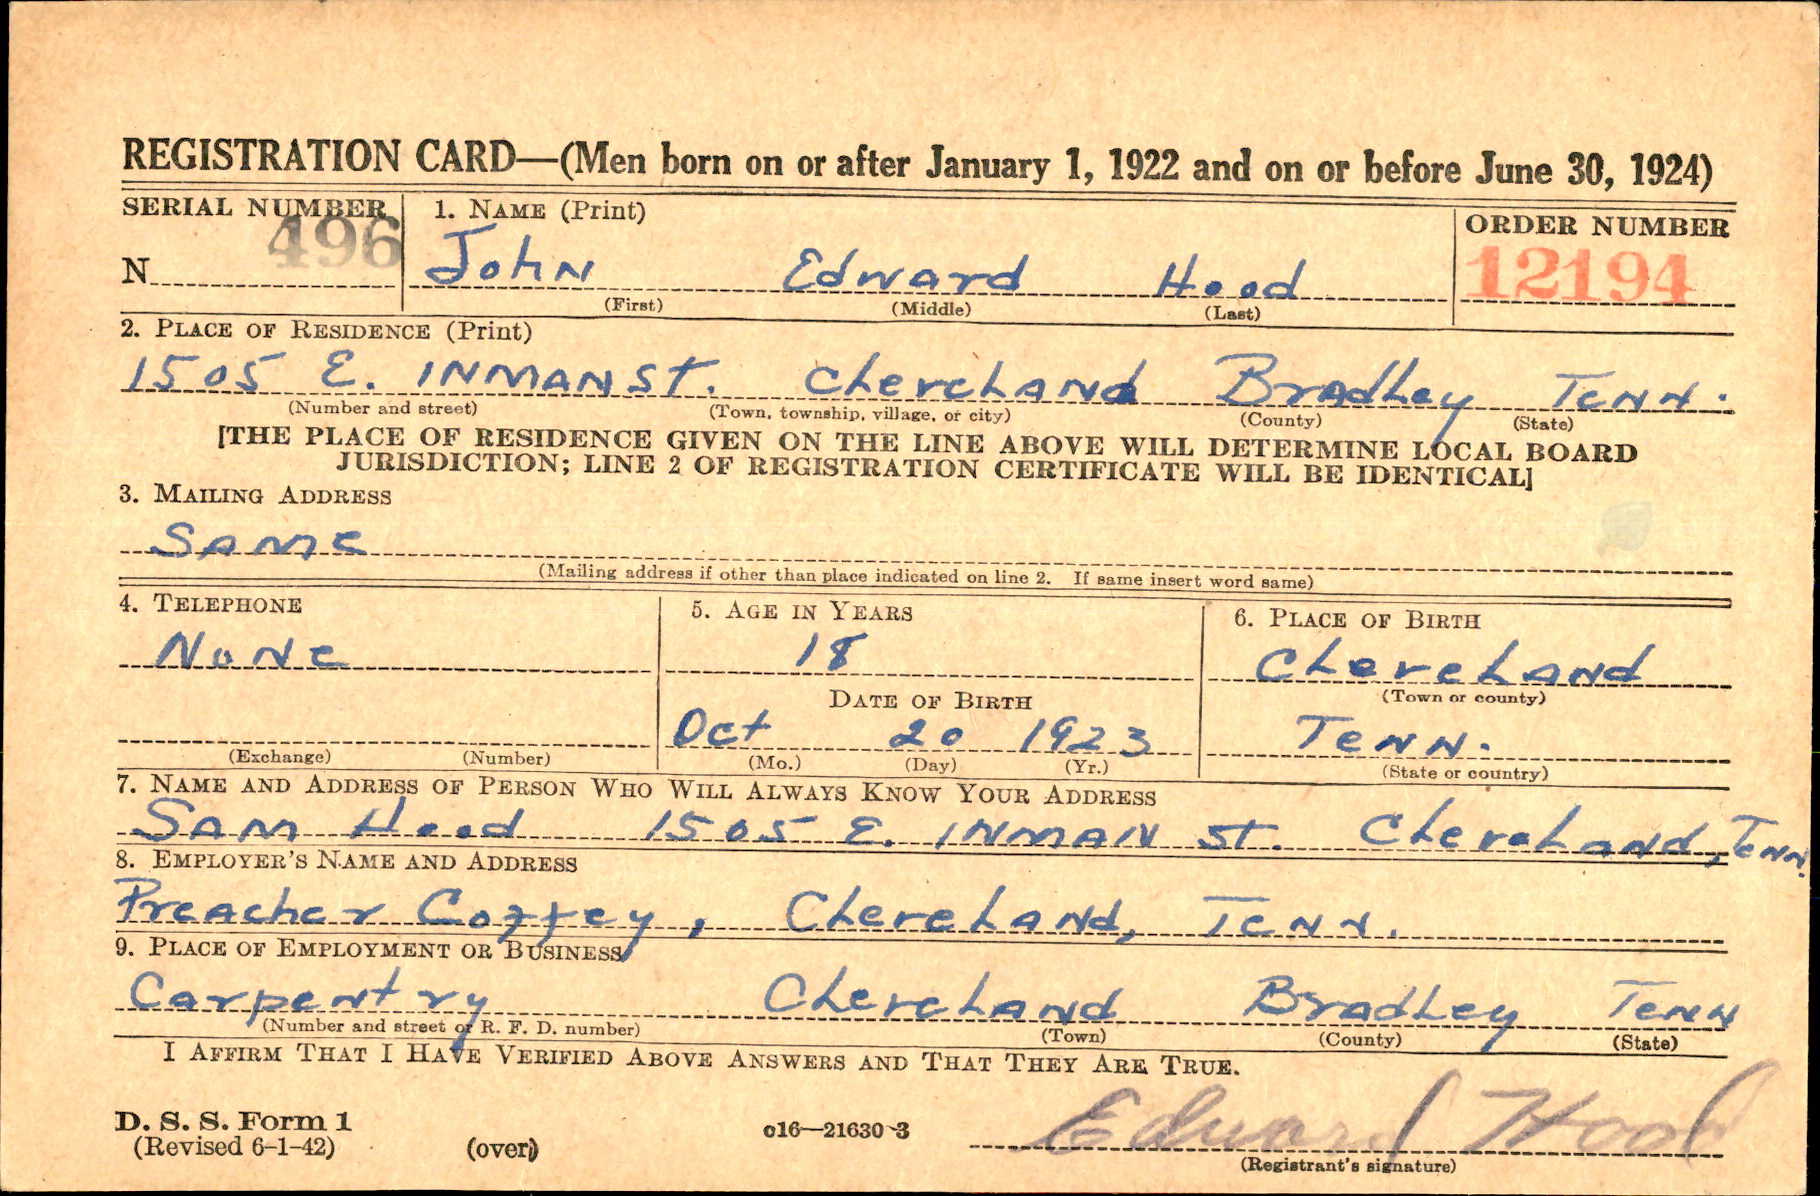 REGISTRATION CARD—(Men born on or after January 1, 1922 and on or before June 30, 1924)
SERIAL NUMBER 1. NAME (Print) ORDER NUMBER
N 496 John Edward Hood 12194
(First) (Middle) (Last)
2. PLACE OF RESIDENCE (Print)
1505 E. INMAN ST. Cleveland Bradley Tenn.
(Number and street) (Town, township, village, or city) (County) (State)
[THE PLACE OF RESIDENCE GIVEN ON THE LINE ABOVE WILL DETERMINE LOCAL BOARD
JURISDICTION; LINE 2 OF REGISTRATION CERTIFICATE WILL BE IDENTICAL]
3. MAILING ADDRESS
Same
(Mailing address if other than place indicated on line 2. If same insert word same)
4. TELEPHONE 5. AGE IN YEARS 6. PLACE OF BIRTH
None 18 Cleveland
(Town or county)
DATE OF BIRTH
Oct 20 1923 Tenn.
(Exchange) (Number) (Mo.) (Day) (Yr.) (State or country)
7. NAME AND ADDRESS OF PERSON WHO WILL ALWAYS KNOW YOUR ADDRESS
Sam Hood 1505 E. INMAN ST. Cleveland, Tenn.
8. EMPLOYER'S NAME AND ADDRESS
Preacher Coffey, Cleveland, Tenn.
9. PLACE OF EMPLOYMENT OR BUSINESS
Carpentry Cleveland Bradley Tenn
(Number and street or R. F. D. number) (Town) (County) (State)
I AFFIRM THAT I HAVE VERIFIED ABOVE ANSWERS AND THAT THEY ARE TRUE.
D. S. S. Form 1
(Revised 6-1-42) (over) c16—21630-3 Edward Hood
(Registrant's signature)